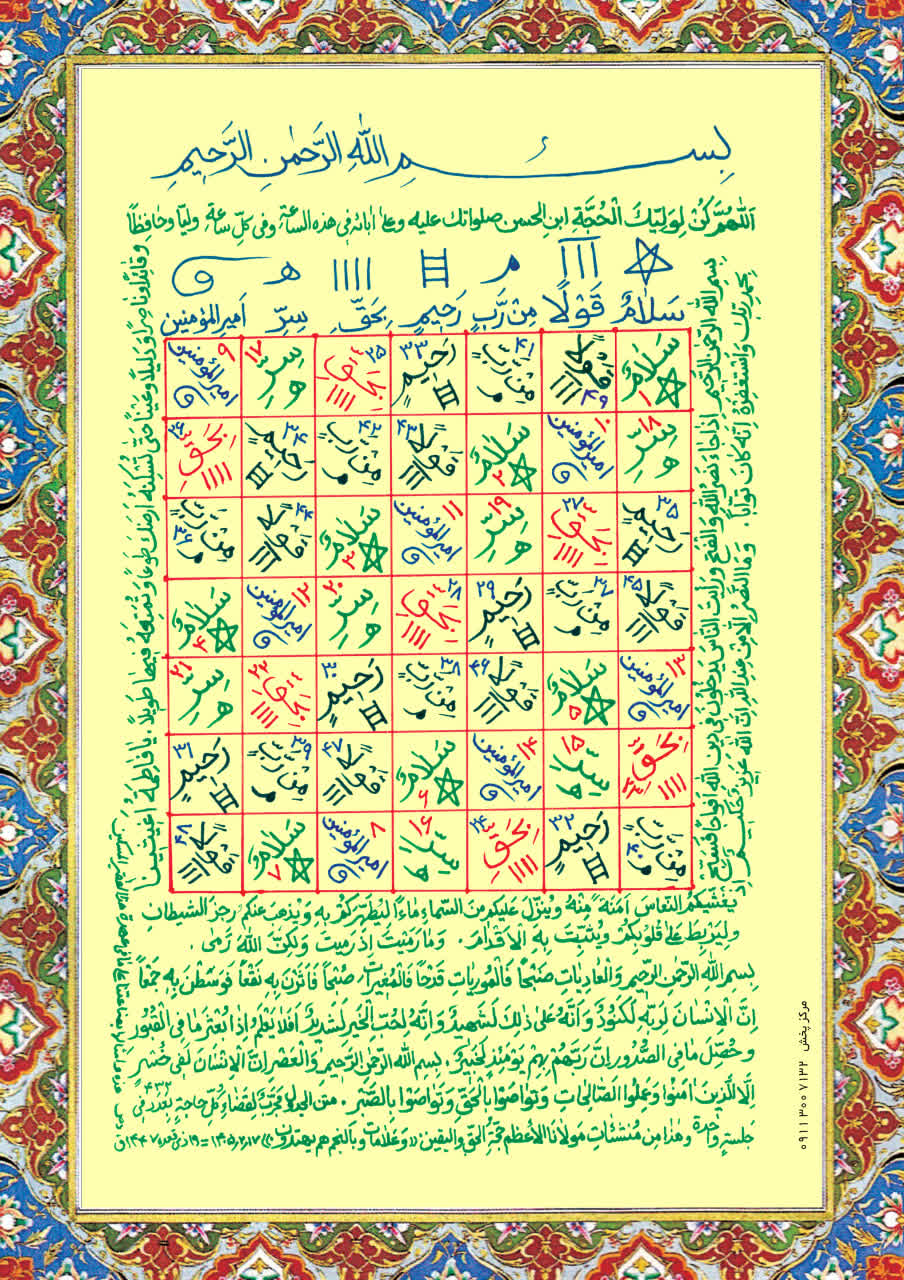 بِســـــمِ اللهِ الرَّحمٰنِ الرَّحیمِ
اَللّٰهُمَّ كُنْ لِوَلِيِّكَ الْحُجَّةِ ابنِ الحسن صلواتك علیه وعلیٰ اٰبائهِ فی هذه السّاعةِ وفی کلِّ ساعةٍ ولیّاً وحافظاً
وقائِداً وناصِراً ودَلیلاً وعَیناً حتّیٰ تُسْکِنَهُ اَرضَكَ طَوعاً وَتُمَتِّعَهُ فیها طویلاً. یا فاطمةُ اَغیثینا
سَلَامٌ قَوْلًا مِنْ رَبٍّ رَحِیمٍ بِحَقِّ سِرِّ اَمیرِالمؤمنین
سَلَامٌ ۱ قَوْلًا ۴۹ مِنْ رَبٍّ ۴۱ رَحِیمٍ ۳۳ بِحَقِّ ۲۵ سِرِّ ۱۷ امیرالمؤمنین ۹
سِرِّ ۱۸ امیرالمؤمنین ۱۰ سَلَامٌ ۲ قَوْلًا ۴۳ مِنْ رَبٍّ ۴۲ رَحِیمٍ ۳۴ بِحَقِّ ۲۶
رَحِیمٍ ۳۵ بِحَقِّ ۲۷ سِرِّ ۱۹ امیرالمؤمنین ۱۱ سَلَامٌ ۳ قَوْلًا ۴۴ مِنْ رَبٍّ ۳۶
قَوْلًا ۴۵ مِنْ رَبٍّ ۳۷ رَحِیمٍ ۲۹ بِحَقِّ ۲۸ سِرِّ ۲۰ امیرالمؤمنین ۱۲ سَلَامٌ ۴
امیرالمؤمنین ۱۳ سَلَامٌ ۵ قَوْلًا ۴۶ مِنْ رَبٍّ ۳۸ رَحِیمٍ ۳۰ بِحَقِّ ۲۲ سِرِّ ۲۱
بِحَقِّ ۲۳ سِرِّ ۱۵ امیرالمؤمنین ۱۴ سَلَامٌ ۶ قَوْلًا ۴۷ مِنْ رَبٍّ ۳۹ رَحِیمٍ ۳۱
مِنْ رَبٍّ ۴۰ رَحِیمٍ ۳۲ بِحَقِّ ۲۴ سِرِّ ۱۶ امیرالمؤمنین ۸ سَلَامٌ ۷ قَوْلًا
بسم الله الرحمن الرحیم اِذا جاءَ نَصرُ اللهِ وَالفَتحُ وَرَاَیتَ النّاسَ یَدخُلونَ فی دینِ اللهِ اَفواجاً فَسَبِّح
بِحَمدِ رَبِّكَ وَاستَغفِرهُ اِنَّهُ کانَ تَوّاباً. وَمَا النَّصرُ اِلّا مِن عِندِ اللهِ اِنَّ اللهَ عَزیزٌ حَکیمٌ
اِذ یُغَشّیکُمُ النُّعاسَ اَمَنَةً مِنْهُ وَیُنَزِّلُ عَلَیکُم مِنَ السَّماءِ ماءً لِیُطَهِّرَکُمْ بِهِ وَیُذهِبَ عَنکُم رِجزَ الشَّیطانِ
وَلِیَربِطَ عَلیٰ قُلوبِکُمْ وَیُثَبِّتَ بِهِ الاَقدامَ. وَما رَمَیْتَ اِذ رَمَیتَ وَلٰکِنَّ اللهَ رَمیٰ.
بسم اللهِ الرّحمنِ الرّحیمِ وَالْعادِیاتِ ضَبْحاً فَالْمُورِیاتِ قَدْحاً فَالمُغیراتِ صُبْحاً فَاَثَرْنَ بِهِ نَقْعاً فَوَسَطْنَ بِهِ جَمْعاً
اِنَّ الاِنْسانَ لِرَبِّهِ لَکَنُودٌ وَ اِنَّهُ عَلیٰ ذٰلِكَ لَشَهِیدٌ وَ اِنَّهُ لِحُبِّ الخَیرِ لَشَدیدٌ اَفَلا یَعْلَمُ اِذا بُعْثِرَ ما فی القُبُورِ
وَ حُصِّلَ ما فی الصُّدُورِ اِنَّ رَبَّهُمْ بِهِمْ یَوْمَئِذٍ لَخَبِیرٌ. بسم الله الرحمن الرحیم وَالْعَصْرِ اِنَّ الاِنْسَانَ لَفی خُسْرٍ
اِلّا الَّذینَ اٰمَنُوا وَعَمِلُوا الصّالِحاتِ وَتَواصَوْا بِالْحَقِّ وَتَواصَوْا بِالصَّبْرِ. متن الجدول مُجَرَّبٌ لِقَضاءِ کُلِّ حاجةٍ بِعَدَدِ ۴۳۲ فی
جلسةٍ واحدة وهٰذا مِن مُنشَئاتِ مَولانَا الاَعظم حُجَّةِ الحَقِّ والیَقین «وَعَلاماتٍ وَبِالنَّجمِ هُم یَهتَدون» ۱۴۰۵٫۲٫۱۷ = ۱۴۴۷ ق
مرکز پخش ۰۹۱۱۳۰۰۷۱۳۲